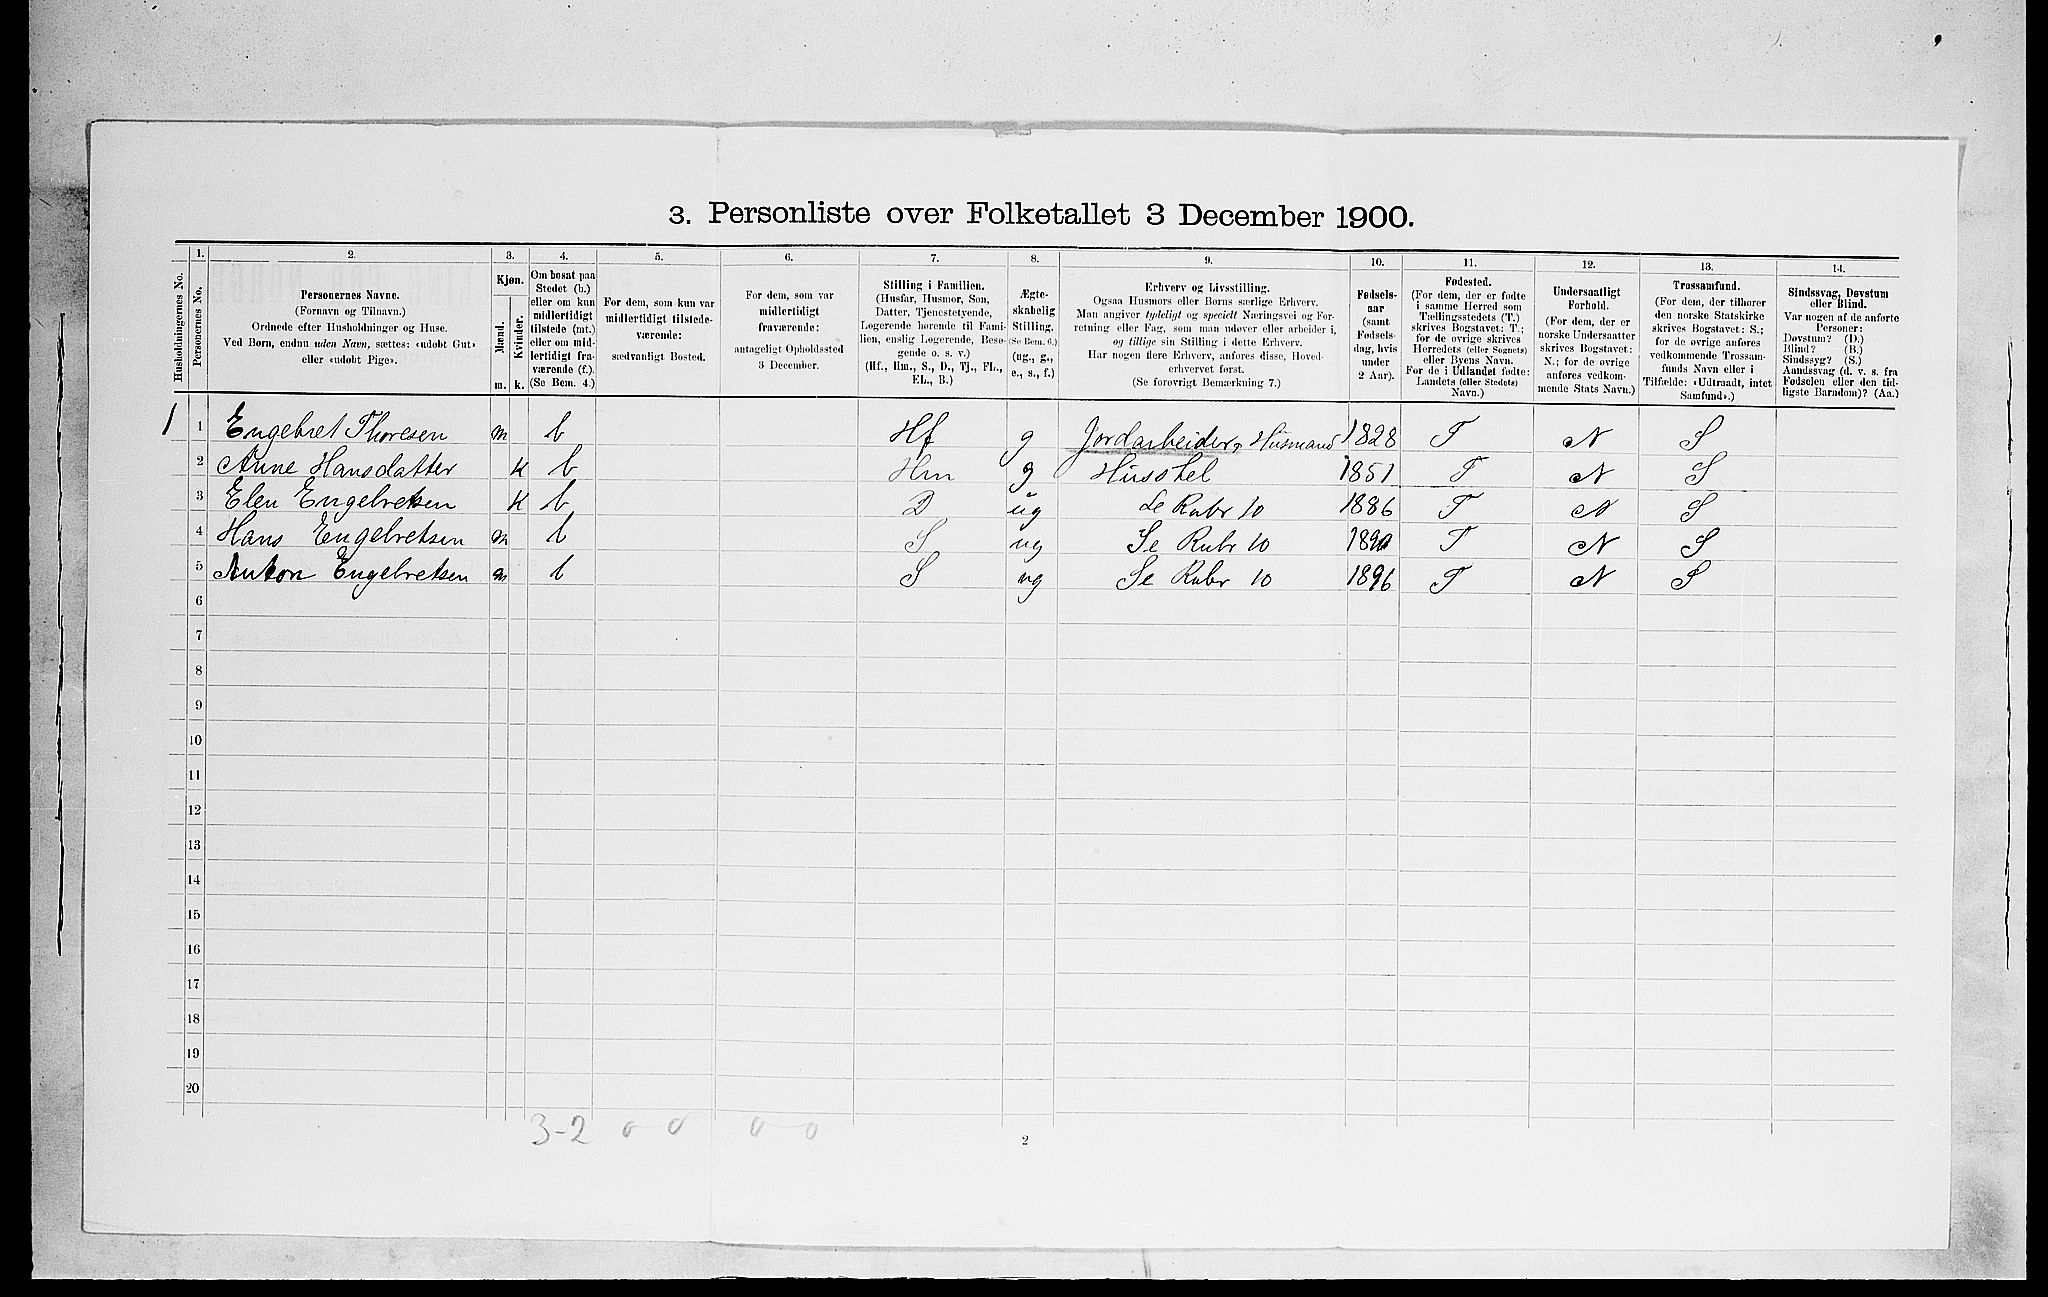 3. Personliste over Folketallet 3 December 1900.
Husholdningernes No.
1.
Personernes No.
2.
Personernes Navne.
(Fornavn og Tilnavn.)
Ordnede efter Husholdninger og Huse.
Ved Børn, endnu uden Navn, sættes: «udøbt Gut»
eller «udøbt Pige».
3.
Kjøn.
Mænd.
m.
Kvinder.
k.
4.
Om bosat paa
Stedet (b.)
eller om kun
midlertidigt
tilstede (mt.)
eller om mid-
lertidigt fra-
værende (f.).
(Se Bem. 4.)
5.
For dem, som kun var
midlertidigt tilstede-
værende:
sædvanligt Bosted.
6.
For dem, som var
midlertidigt
fraværende:
antageligt Opholdssted
3 December.
7.
Stilling i Familien.
(Husfar, Husmor, Søn,
Datter, Tjenestetyende,
Logerende hørende til Fami-
lien, enslig Logerende, Besø-
gende o. s. v.)
(Hf., Hm., S., D., Tj., FL.,
EL., B.)
8.
Ægte-
skabelig
Stilling.
(Se Bem. 6.)
(ug., g.,
e., s., f.)
9.
Erhverv og Livsstilling.
Ogsaa Husmors eller Børns særlige Erhverv.
Man angiver tydeligt og specielt Næringsvei og For-
retning eller Fag, som man udøver eller arbeider i,
og tillige sin Stilling i dette Erhverv.
Har nogen flere Erhverv, anføres disse, Hoved-
erhvervet først.
(Se forøvrigt Bemærkning 7.)
10.
Fødsels-
aar
(samt
Fødsels-
dag, hvis
under
2 Aar).
11.
Fødested.
(For dem, der er fødte
i samme Herred som
Tællingsstedets (T.)
skrives Bogstavet: T.;
for de øvrige skrives
Herredets (eller Sognets)
eller Byens Navn.
For de i Udlandet fødte:
Landets (eller Stedets)
Navn.)
12.
Undersaatligt
Forhold.
(For dem, der er
norske Undersaatter
skrives Bogstavet:
N.; for de øvrige
anføres vedkom-
mende Stats Navn.)
13.
Trossamfund.
(For dem, der tilhører
den norske Statskirke
skrives Bogstavet: S.;
for de øvrige anføres
vedkommende Trossam-
funds Navn eller i
Tilfælde: «Udtraadt, intet
Samfund».)
14.
Sindssvag, Døvstum
eller Blind.
Var nogen af de anførte
Personer:
Døvstum? (D.)
Blind? (B.)
Sindssyg? (S.)
Aandssvag (d. v. s. fra
Fødselen eller den tid-
ligste Barndom)? (Aa.)
1 1 Engebret Thoresen m b Hf g Jordarbeider, Husmand 1828 T N S
2 Anne Hansdatter K b Hm g Husstel 1851 T N S
3 Elen Engebretsen K b D ug Se Rubr 10 1886 T N S
4 Hans Engebretsen m b S ug Se Rubr 10 1890 T N S
5 Anton Engebretsen m b S ug Se Rubr 10 1896 T N S
6
7
8
9
10
11
12
13
14
15
16
17
18
19
20
3-2 0 0 0 0
2